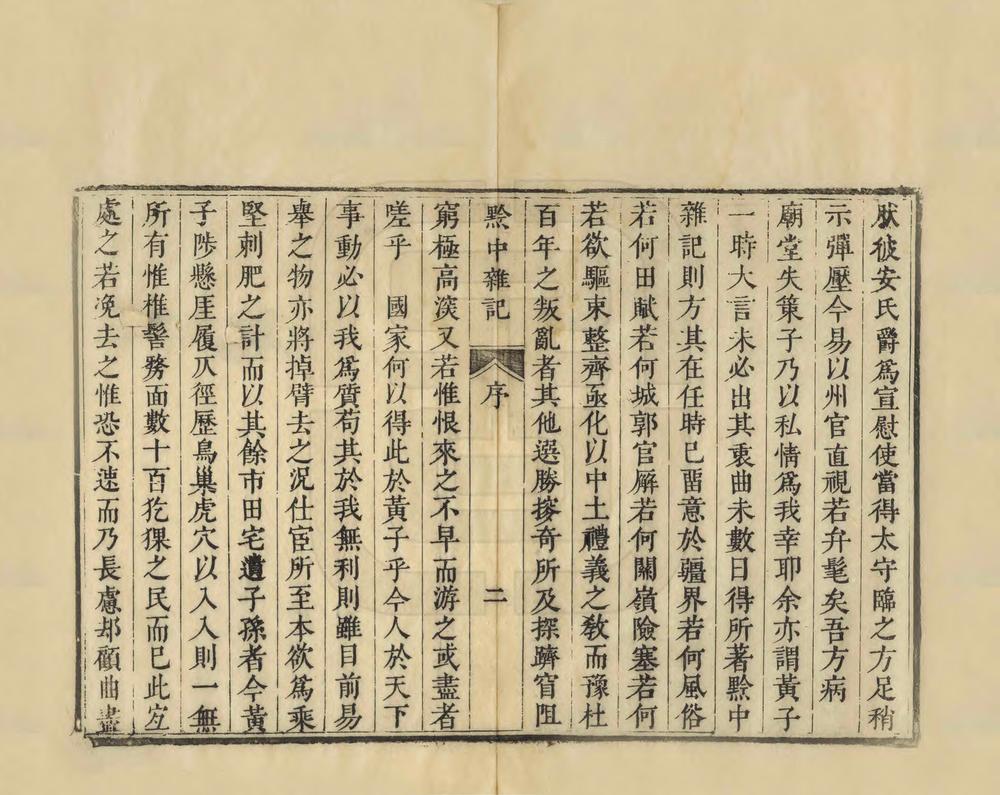 狀彼安氏爵爲宣慰使當得太守臨之方足稍
示彈壓今易以州官直視若弁髦矣吾方病
廟堂失策子乃以私情爲我幸耶余亦謂黃子
一時大言未必出其衷曲未數日得所著黔中
雜記則方其在任時已畱意於疆界若何風俗
若何田賦若何城郭官廨若何關嶺險塞若何
若欲驅束整齊亟化以中土禮義之敎而豫杜
百年之叛亂者其他選勝搜奇所及探躋窅阻
黔中雜記 序 二
窮極高深又若惟恨來之不早而游之或盡者
嗟乎 國家何以得此於黃子乎今人於天下
事動必以我爲質苟其於我無利則雖目前易
舉之物亦將掉臂去之況仕宦所至本欲爲乘
堅刺肥之計而以其餘市田宅遺子孫者今黃
子陟懸厓履仄徑歷鳥巢虎穴以入入則一無
所有惟椎髻務面數十百犵猓之民而已此宜
處之若凂去之惟恐不速而乃長慮却顧曲盡